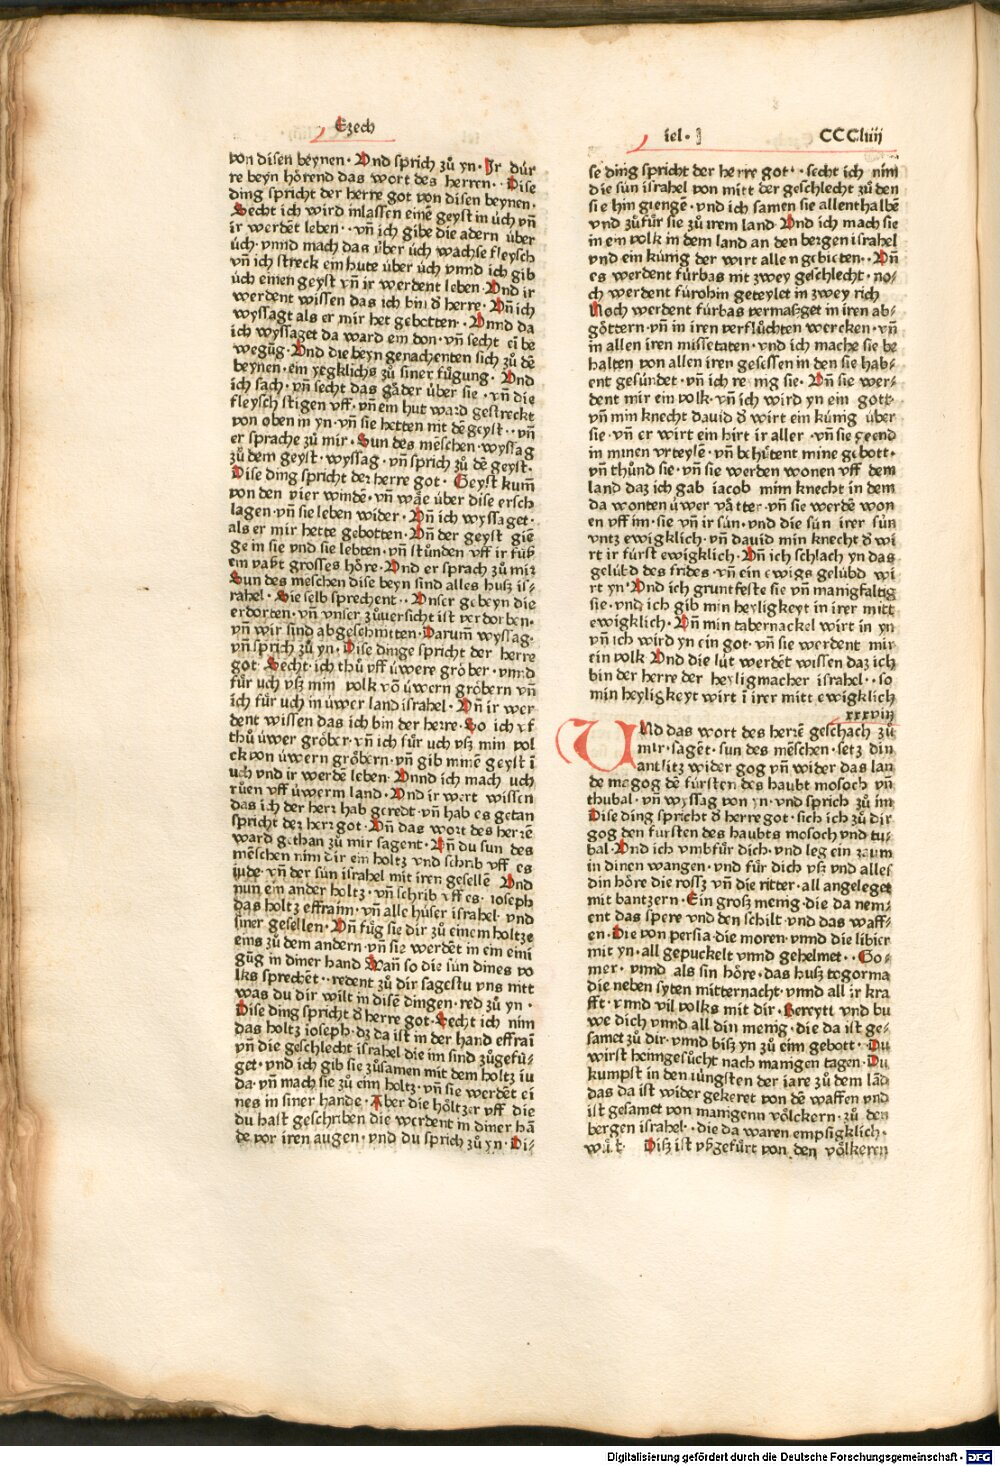 Ezech
von disen beynen· Vnd sprich zů yn· Ir dür
re beyn hörend das wort des herren·· Dise
ding spricht der herre got von disen beynen·
Secht ich wird inlassen einē geyst in üch vn̄
ir werdēt leben··vn̄ ich gibe die adern über
üch·vnnd mach das über üch wachse fleysch
vn̄ ich streck ein hute über üch vnnd ich gib
üch einen geyst vn̄ ir werdent leben·Vnd ir
werdent wissen das ich bin ď herre·Vn̄ ich
wyssagt als er mir het gebotten··Vnnd da
ich wyssaget da ward ein don·vn̄ secht ei be
wegūg·Vnd die beyn genachenten sich zů dē
beynen·ein yegklichs zů siner fůgung· Vnd
ich sach·vn̄ secht das gåder über sie·vn̄ die
fleysch stigen vff·vn̄ ein hut ward gestreckt
von oben in yn·vn̄ sie hetten nit dē geyst··vn̄
er sprache zů mir·Sun des mēschen·wyssag
zů dem geyst·wyssag·vn̄ sprich zů dē geyst·
Dise ding spricht der herre got· Geyst kum̄
von den vier windē·vn̄ wåe über dise ersch
lagen·vn̄ sie leben wider·Vn̄ ich wyssaget·
als er mir hette gebotten·Vn̄ der geyst giē
ge in sie vnd sie lebten·vn̄ stůnden vff ir fůß
ein vast grosses höre·Vnd er sprach zů mir
Sun des meschen dise beyn sind alles husz is⸗
rahel·Sie selb sprechent··Vnser gebeyn die
erdorten·vn̄ vnser zůuersicht ist verdorben·
vn̄ wir sind abgeschnitten·Darum̄ wyssag·
vn̄ sprich zů yn·Dise dinge spricht der herre
got·Secht·ich thů vff üwere gröber·vnnd
fůr uch vsz min volk vō üwern gröbern vn̄
ich fůr uch in üwer land israhel·Vn̄ ir wer
dent wissen das ich bin der herre·So ich vf
thů üwer gröber·vn̄ ich fůr uch vsz min vol
ck von üwern gröbern·vn̄ gib minē geyst ī
uch vnd ir werdē leben·Vnnd ich mach uch
růen vff üwerm land·Vnd ir wert wissen
das ich der herr hab geredt·vn̄ hab es getan
spricht der herr got·Vn̄ das wort des herrē
ward gethan zů mir sagent·Vn̄ du sun des
mēschen nim dir ein holtz vnd schrib vff es
iude·vn̄ der sün israhel mit iren gesellē Vnd
nun ein ander holtz·vn̄ schrib vff es· ioseph
das holtz effraim·vn̄ alle hüser israhel·vnd
siner gesellen·Vn̄ fůg sie dir zů einem holtze
eins zů dem andern·vn̄ sie werdēt in ein eini
gūg in diner hand Wan̄ so die sün dines vo
lks sprechēt··redent zů dir sagestu vns nitt
was du dir wilt in disē dingen·red zů yn·
Dise ding spricht ď herre got·Secht ich nim
das holtz ioseph·dz da ist in der hand effrai
vn̄ die geschlecht israhel die im sind zůgefů⸗
get·vnd ich gib sie zůsamen mit dem holtz iu
da·vn̄ mach sie zů eim holtz·vn̄ sie werdēt ei
nes in siner hande·Aber die höltzer vff die
du hast geschriben die werdent in diner hā
de vor iren augen·vnd du sprich zů yn·Di⸗
iel· CCCliiij
se ding spricht der herre got··secht ich nim
die sün israhel von mitt der geschlecht zů den
sie hin giengē·vnd ich samen sie allenthalbē
vnd zůfůr sie zů irem land·Vnd ich mach sie
in ein volk in dem land an den bergen israhel
vnd ein künig der wirt allen gebieten··Vn̄
es werdent fürbas nit zwey geschlecht·no⸗
ch werdent fürohin geteylet in zwey rich
Noch werdent fürbas vermaßget in iren ab⸗
göttern·vn̄ in iren verflůchten wercken·vn̄
in allen iren missetaten·vnd ich mache sie be
halten von allen iren gesessen in den sie hab⸗
ent gesündet·vn̄ ich reinig sie·Vn̄ sie wer⸗
dent mir ein volk·vn̄ ich wird yn ein gott·
vn̄ min knecht dauid ď wirt ein künig über
sie·vn̄ er wirt ein hirt ir aller·vn̄ sie geend
in minen vrteylē·vn̄ behůtent mine gebott·
vn̄ thůnd sie·vn̄ sie werden wonen vff dem
land daz ich gab iacob mim knecht in dem
da wonten üwer våtter·vn̄ sie werdē won
en vff im·sie vn̄ ir sün·vnd die sün irer sün
vntz ewigklich·vn̄ dauid min knecht ď wi
rt ir fürst ewigklich·Vn̄ ich schlach yn das
gelübd des frides·vn̄ ein ewigs gelübd wi
rt yn·Vnd ich gruntfeste sie vn̄ manigfaltig
sie·vnd ich gib min heyligkeyt in irer mitt
ewigklich·Vn̄ min tabernackel wirt in yn
vn̄ ich wird yn ein got·vn̄ sie werdent mir
ein volk Vnd die lüt werdēt wissen daz ich
bin der herre der heyligmacher israhel··so
min heyligkeyt wirt ī irer mitt ewigklich
xxxviij
VNd das wort des herrē geschach zů
mir·sagēt·sun des mēschen·setz din
antlitz wider gog vn̄ wider das lan
de magog dē fürsten des haubt mosoch vn̄
thubal·vn̄ wyssag von yn·vnd sprich zů im
Dise ding spricht ď herre got·sich ich zů dir
gog den fürsten des haubts mosoch vnd tu⸗
bal·Vnd ich vmbfůr dich·vnd leg ein zaum
in dinen wangen·vnd fůr dich vsz vnd alles
din höre die rossz vn̄ die ritter·all angeleget
mit bantzern·Ein grosz menig·die da nem⸗
ent das spere vnd den schilt vnd das waff⸗
en·Die von persia·die moren·vnnd die libier
mit yn·all gepuckelt vnnd gehelmet··Go⸗
mer·vnnd als sin höre·das husz togorma
die neben syten mitternacht·vnnd all ir kra
fft·vnnd vil volks mit dir·Bereytt vnd bu
we dich vnnd all din menig·die da ist ge⸗
samet zů dir·vnnd bisz yn zů eim gebott·Du
wirst heimgesůcht nach manigen tagen·Du
kumpst in den iüngsten der iare zů dem lād
das da ist wider gekeret von dē waffen vnd
ist gesamet von manigenn völckern·zů den
bergen israhel··die da waren empsigklich·
wůt· Disz ist vßgefůrt von den völkeren
Digitalisierung gefördert durch die Deutsche Forschungsgemeinschaft - DFG